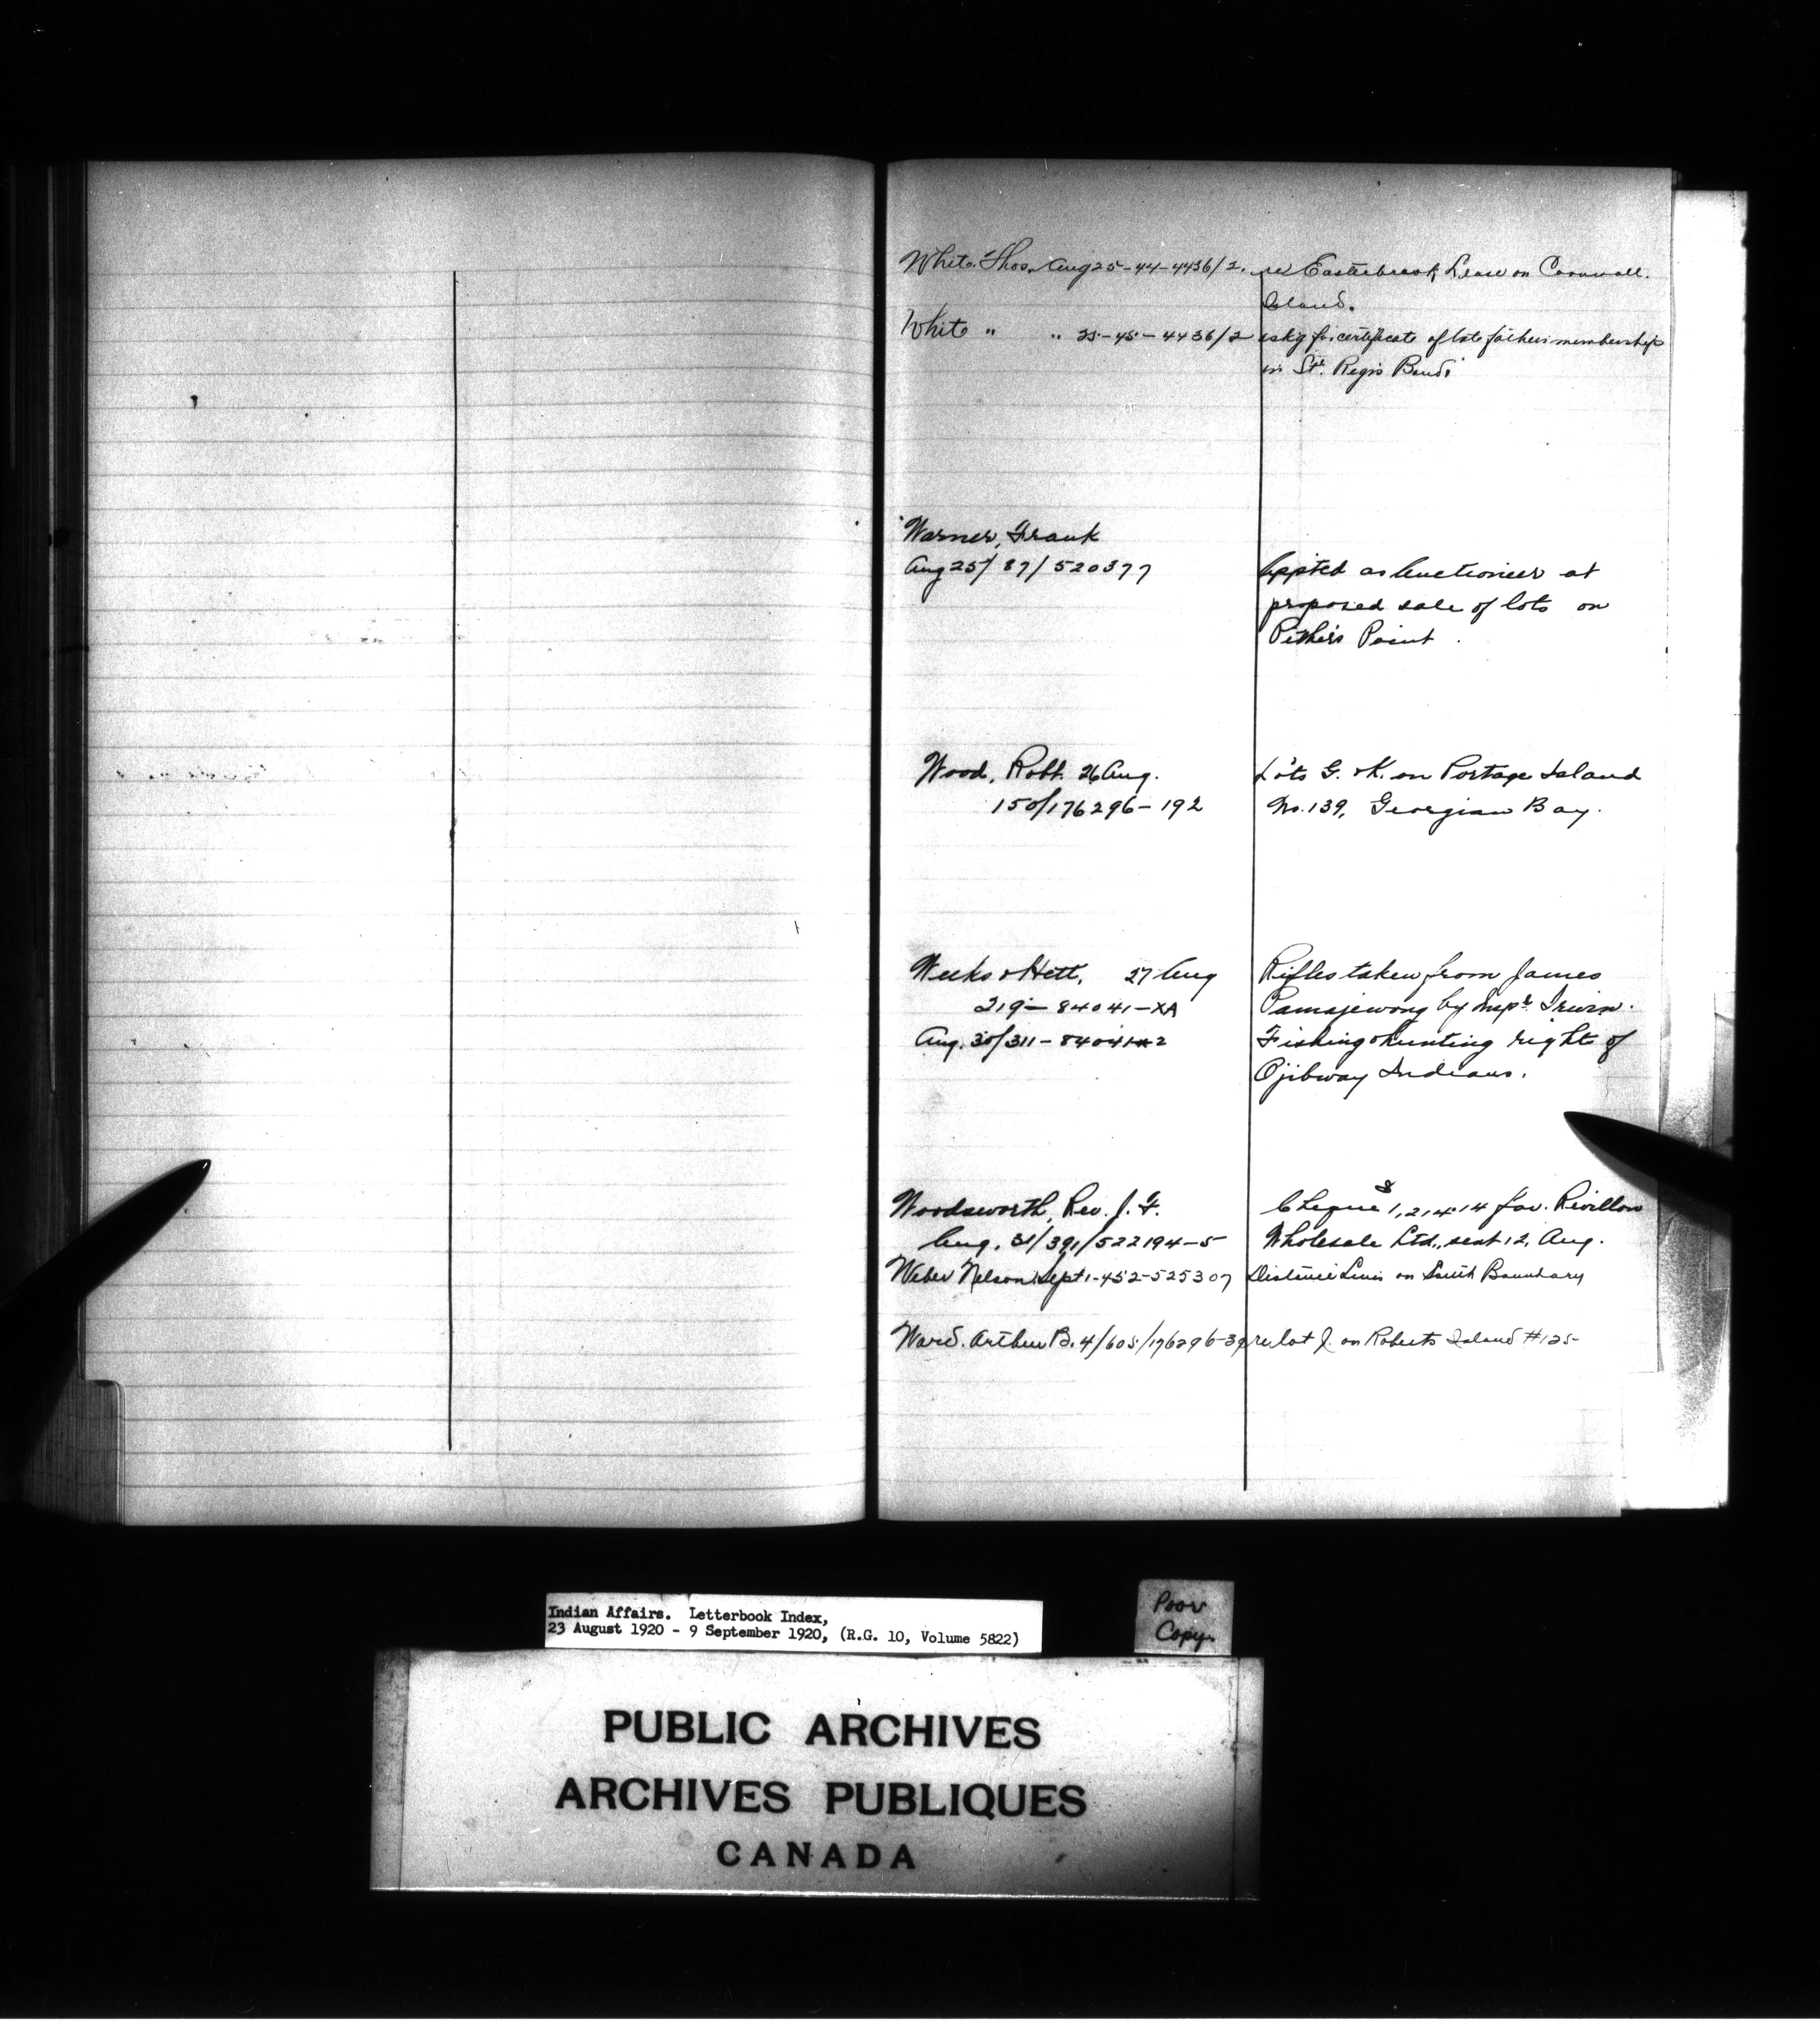 White. Thos. Aug 25-44-4436/2. re Easterbrook Lease on Cornwall.
Island.
White " " 25-45-4436/2 ask'g for certificate of late father's membership
in St. Regis Band.
Warner, Frank
Aug 25/ 87/ 520377 Appted as Auctioneer at
proposed sale of lots on
Pither's Point.
Wood, Robt. 26 Aug. Lots G. & K. on Portage Island
150/176296-192 No. 139, Georgian Bay.
Weeks & Hett, 27 Aug Rifles taken from James
219-84041-XA Pamajewong by Inspr Irwin.
Aug. 30/311-84041 2 Fishing & hunting right of
Ojibway Indians.
Woodsworth, Rev. J. F. Cheque 1,214.14 fav. Revillon
Aug. 31/391/522194-5 Wholesale Ltd., sent 12, Aug.
Weber Nelson Sept 1-452-525307 on South Boundary
Ward. Arthur B. 4/605/176296-39 re lot J. on Roberts Island #125
Indian Affairs. Letterbook Index,
23 August 1920 - 9 September 1920, (R.G. 10, Volume 5822)
Poor
Copy
PUBLIC ARCHIVES
ARCHIVES PUBLIQUES
CANADA